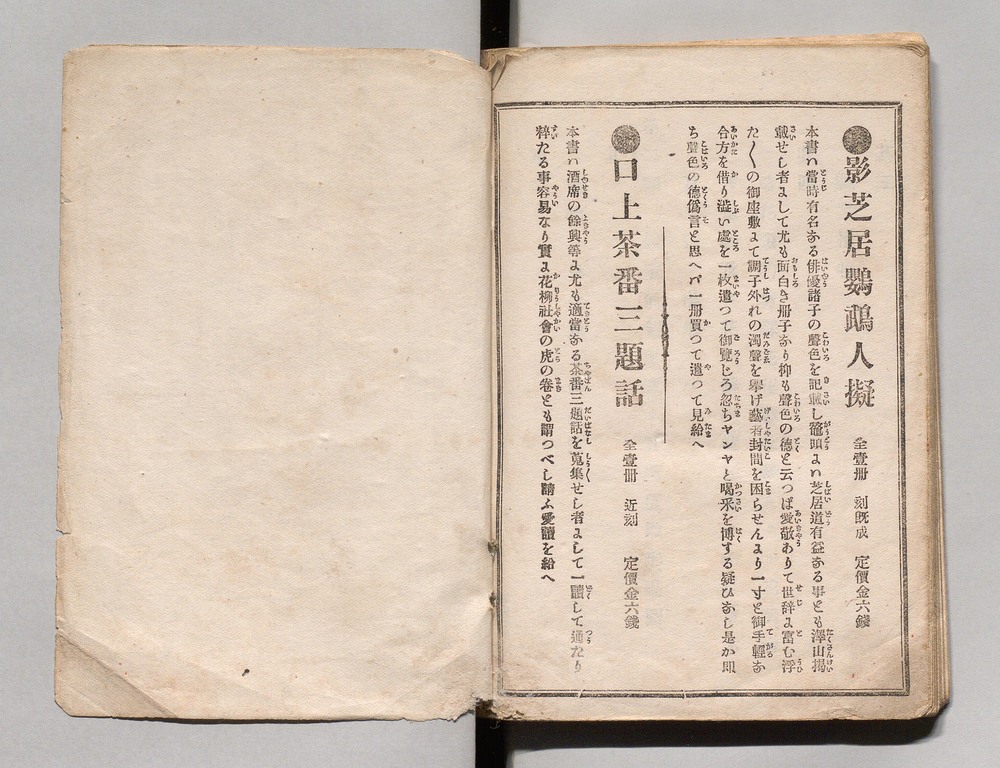 ●影芝居鸚鵡人擬 全壹冊 刻既成 定價金六錢
本書ハ當時有名なる俳優諸子の聲色を記載し鼇頭よハ芝居道有益なる事とも澤山揭
載せし者よして尤も面白き冊子なり抑も聲色の德と云つば愛敬ありて世辞よ富む浮
た〱の御座敷よて調子外れの濁聲を擧げ藝者封間を困らせんより一寸と御手輕な
合方を借り澁い處を一枚遣つて御覽じろ忽ちヤンヤと喝采を博する疑ひなし是か即
ち聲色の德僞言と思へバ一冊買つて遣つて見給へ
●口上茶番三題話 全壹冊 近刻 定價金六錢
本書ハ酒席の餘興等よ尤も適當なる茶番三題話を蒐集せし者よして一讀して通たり
粹たる事容易なり實よ花柳社會の虎の卷とも謂つべし請ふ愛讀を給へ